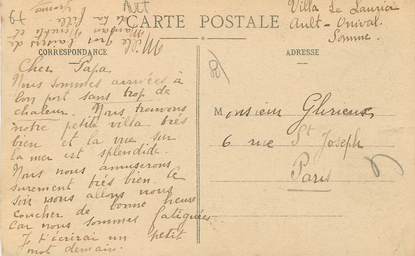 Ault
CARTE POSTALE
Villa Le Lauria
Ault-Onival
Somme.
CORRESPONDANCE
ADRESSE
Cher Papa
Nous sommes arrivées à
bon port sans trop de
chaleur. Nous trouvons
notre petite villa très
bien et la vue sur
la mer est splendide.
Nous nous amuserons
surement très bien. Ce
soir nous allons nous
coucher de bonne heure
car nous sommes fatiguées
Je t'écrirai un petit
mot demain.
Monsieur Glorieux
6 rue St Joseph
Paris